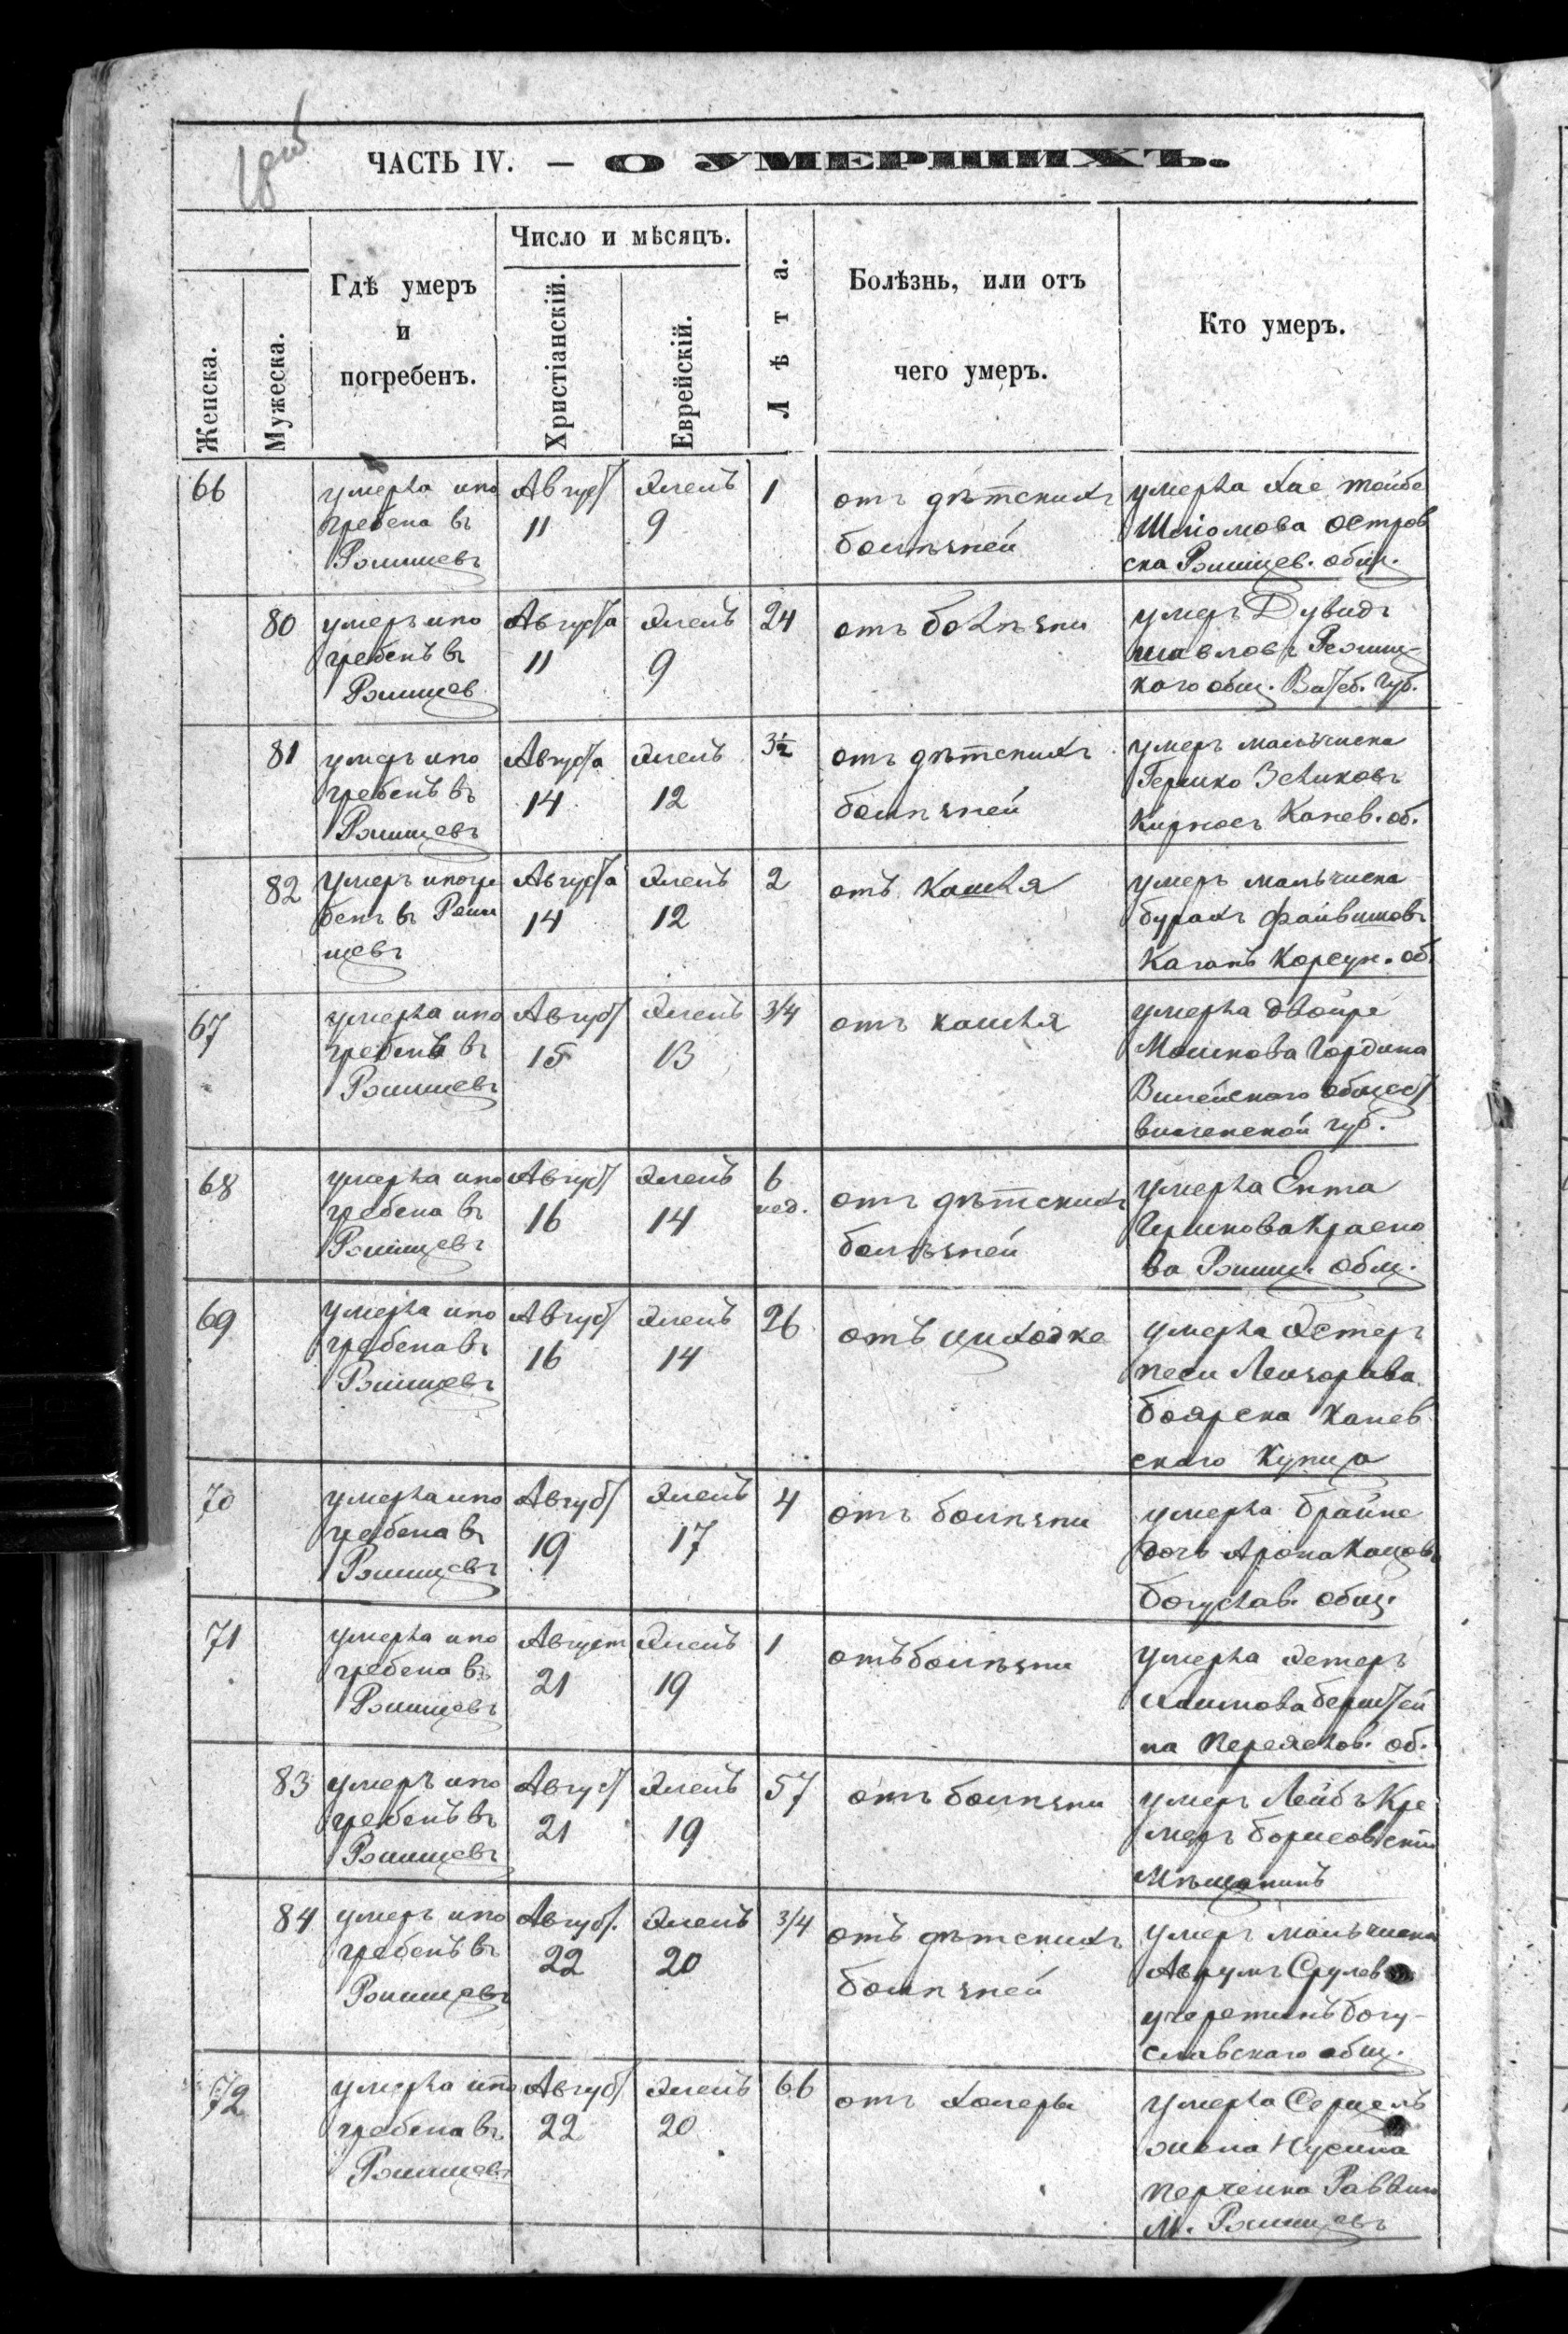 ЧАСТЬ IV. — О УМЕРШИХЪ.
Женска.
Мужеска.
Гдѣ умеръ
и
погребенъ.
Число и мѣсяцъ.
Христіанскій.
Еврейскій.
Лѣта.
Болѣзнь, или отъ
чего умеръ.
Кто умеръ.
66
умерла и по
гребена въ
Ржищевъ
Август
11
Элелъ
9
1
отъ дѣтскихъ
болѣзней
умерла Хае Тейбе
Шліомова Остров
ска Ржищев. общ.
80
умеръ и по
гребенъ въ
Ржищев
Августа
11
Элелъ
9
24
отъ болѣзни
умеръ Дувидъ
шавловъ Режиц-
кого общ. Витеб. губ.
81
умеръ и по
гребенъ въ
Ржищевъ
Августа
14
Элелъ
12
3½
отъ дѣтскихъ
болѣзней
умеръ мальчика
Гершко Зеликовъ
Кирносъ Канев. об.
82
Умеръ и погре
бенъ въ Ржи
щевъ
Августа
14
Элелъ
12
2
отъ кашля
умеръ мальчика
бурахъ файвишовъ
Каганъ Корсун. об.
67
умерла и по
гребенъ въ
Ржищевъ
Август
15
Элелъ
13
3/4
отъ кашля
умерла двойре
Мошкова Гордина
Вилейского общест
виленской губ.
68
умерла и по
гребена въ
Ржищевъ
Август
16
Элелъ
14
6
нед.
отъ дѣтскихъ
болѣзней
умерла Ента
Гершкова Красно
ва Ржищ. общ.
69
умерла и по
гребена въ
Ржищевъ
Август
16
Элелъ
14
26
отъ
умерла Эстеръ
песи Лейзорова
боярска Канев
ского Купца
70
умерла и по
гребена въ
Ржищевъ
Август
19
Элелъ
17
4
отъ болѣзни
умерла брайне
дочь Арона
богуслав. общ.
71
умерла и по
гребена въ
Ржищевъ
Август
21
Элелъ
19
1
отъ болѣзни
умерла Эстеръ
Хаимова берштей
на Переяслов. об.
83
умеръ и по
гребенъ въ
Ржищевъ
Август
21
Элелъ
19
57
отъ болѣзни
умеръ Лейбъ Кре
меръ борисовскій
Мѣщанинъ
84
умеръ и по
гребенъ въ
Ржищевъ
Август.
22
Элелъ
20
3/4
отъ дѣтскихъ
болѣзней
умеръ мальчика
Аврумъ Срулев
богу-
славского общ.
72
умерла и по
гребена въ
Ржищевъ
Август
22
Элелъ
20
66
отъ холеры
умерла
жена Нусина
М. Ржищевъ